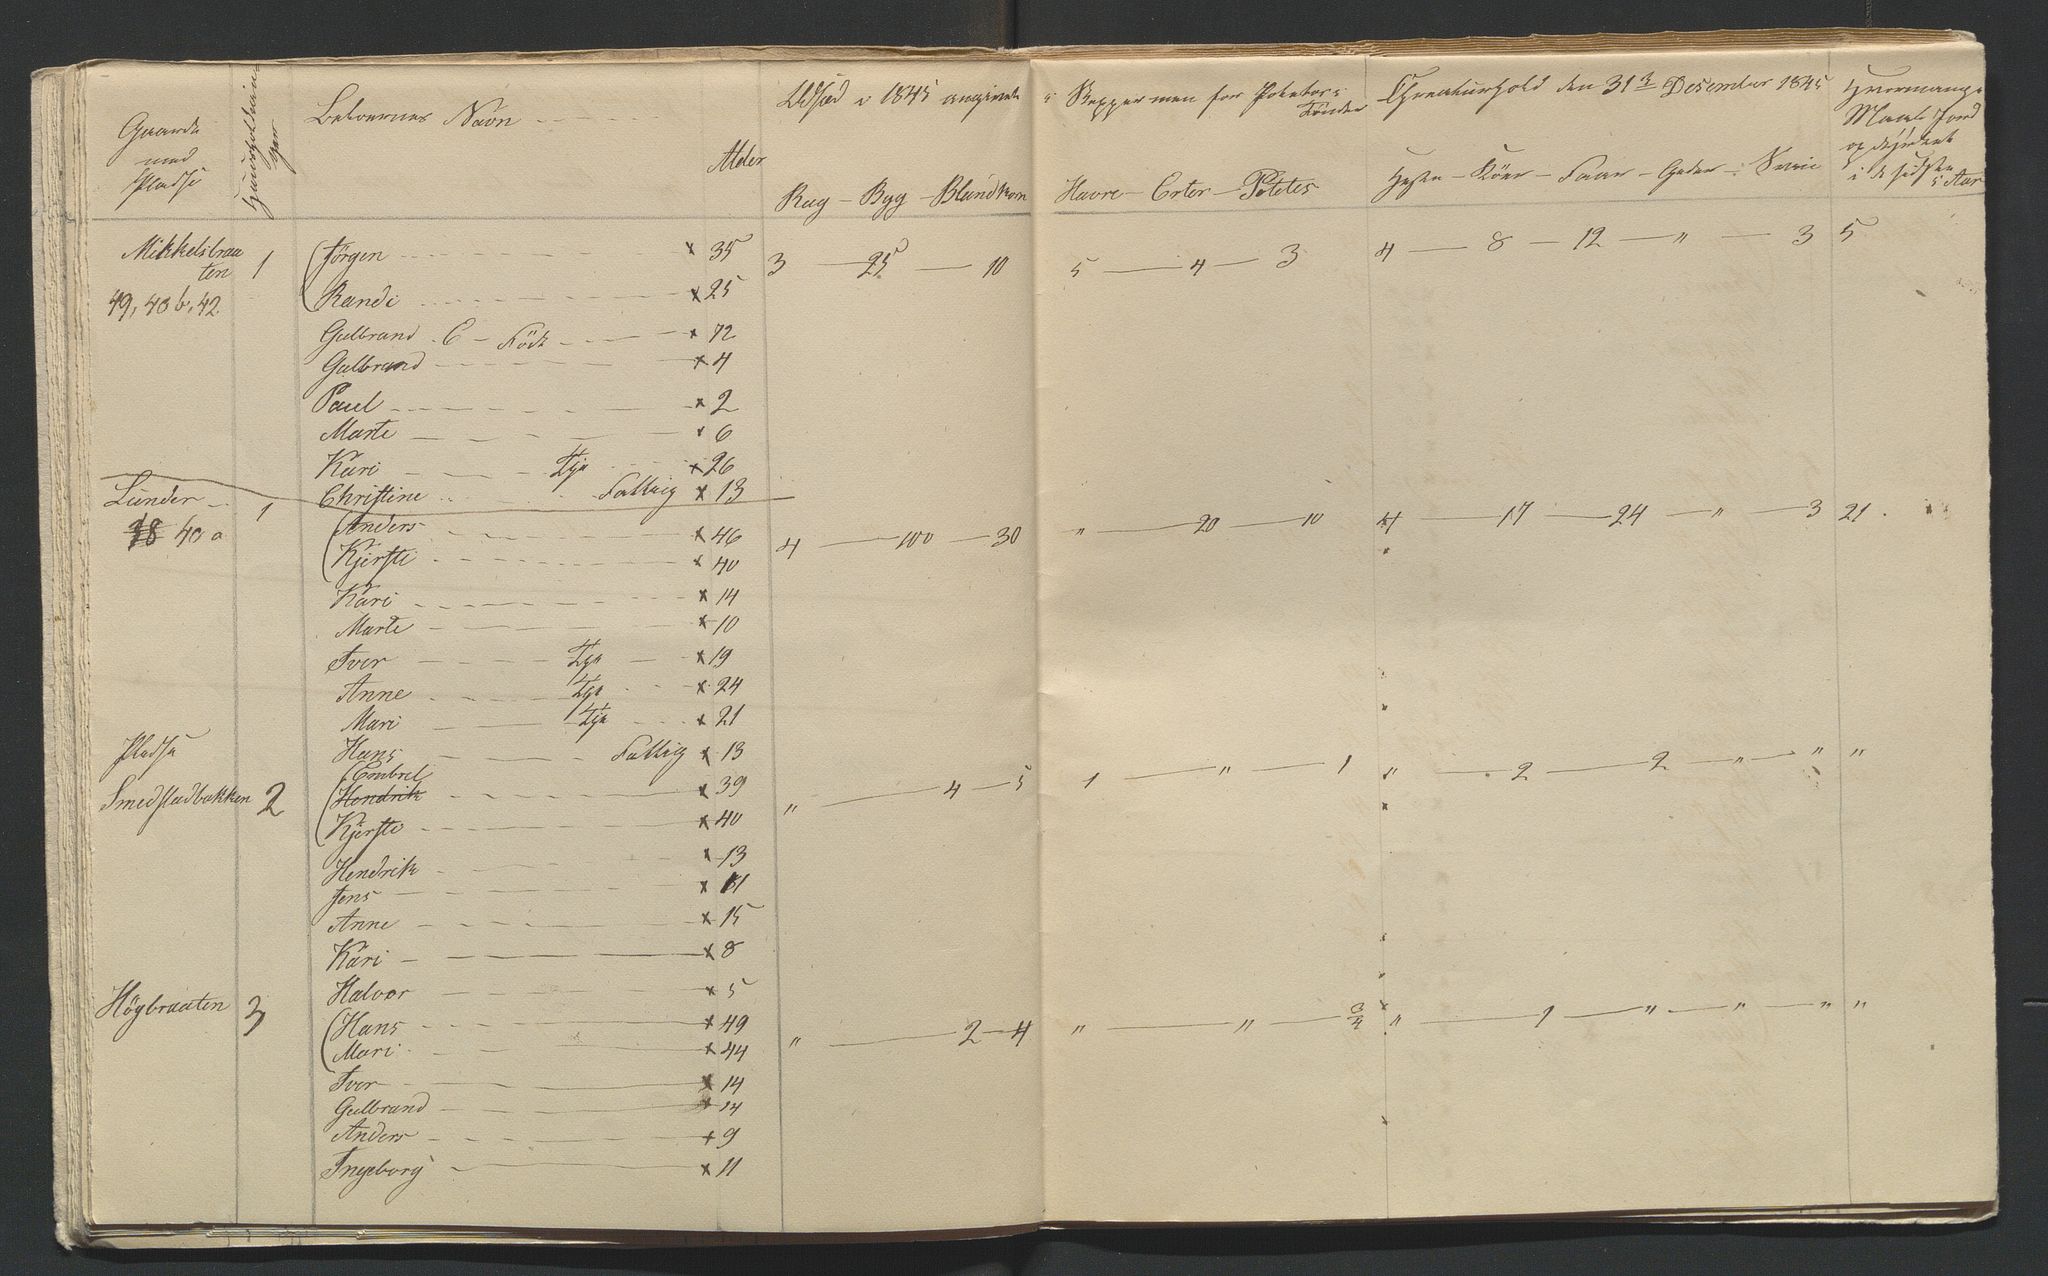 Gaarde med Pladse | Huusholdninger | Beboernes Navn | Alder | Udsæd i 1845 angivent i Skepper men for Poteter i Tönder | Chreaturhold den 31te Desember 1845 | Hvormange Maal Jord opdyrket i de sidste 5 Aar
Rug - Byg - Blandkorn | Havre - Erter - Potetes | Heste - Köer - Faar - Geder - Sviin
Mikkelsbraaten 1 Jørgen x 35 3 25 10 5 4 3 4 8 12 " 3 5
49, 40 b, 42 Randi x 25
Gulbrand C - Föd x 72
Gulbrand x 4
Paul x 2
Marte x 6
Kari Tje x 26
Christine Fattig x 13
Lunder 1 Anders x 46 4 100 30 " 20 10 4 17 24 " 3 21
40 a Kjersti x 40
Kari x 14
Marte x 10
Iver Tje x 19
Anne Tje x 24
Mari Tje x 21
Pladse Hans Fattig x 13
Smedstadbakken 2 Hendrik x 39 " 4 5 1 " 1 " 2 2 " " "
Kjersti x 40
Hendrik x 13
Jens x 11
Anne x 15
Kari x 8
Halvor x 5
Högbraaten 3 Hans x 49 " 2 4 " " 3/4 " 1 " " " "
Mari x 44
Iver x 14
Gulbrand x 14
Anders x 9
Ingeborg x 11